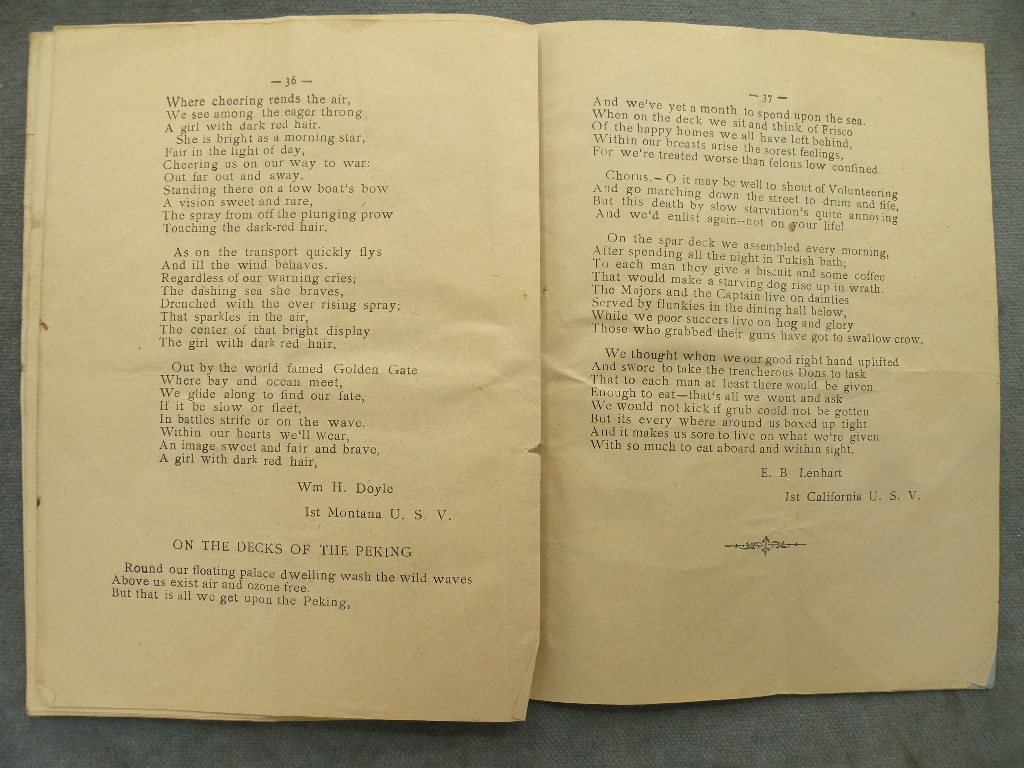 — 36 —
Where cheering rends the air,
We see among the eager throng
A girl with dark red hair.
She is bright as a morning star,
Fair in the light of day,
Cheering us on our way to war:
Out far out and away.
Standing there on a tow boat's bow
A vision sweet and rare,
The spray from off the plunging prow
Touching the dark-red hair.
As on the transport quickly flys
And ill the wind behaves.
Regardless of our warning cries;
The dashing sea she braves,
Drenched with the ever rising spray;
That sparkles in the air,
The center of that bright display
The girl with dark red hair.
Out by the world famed Golden Gate
Where bay and ocean meet,
We glide along to find our fate,
If it be slow or fleet,
In battles strife or on the wave.
Within our hearts we'll wear,
An image sweet and fair and brave,
A girl with dark red hair,
Wm H. Doyle
1st Montana U. S. V.
ON THE DECKS OF THE PEKING
Round our floating palace dwelling wash the wild waves
Above us exist air and ozone free
But that is all we get upon the Peking,
— 37 —
And we've yet a month to spend upon the sea.
When on the deck we sit and think of Frisco
Of the happy homes we all have left behind,
Within our breasts arise the sorest feelings,
For we're treated worse than felons low confined.
Chorus.—O it may be well to shout of Volunteering
And go marching down the street to drum and fife,
But this death by slow starvation's quite annoying
And we'd enlist again--not on your life!
On the spar deck we assembled every morning,
After spending all the night in Tukish bath;
To each man they give a biscuit and some coffee
That would make a starving dog rise up in wrath.
The Majors and the Captain live on dainties
Served by flunkies in the dining hall below,
While we poor succers live on hog and glory
Those who grabbed their guns have got to swallow crow.
We thought when we our good right hand uplifted
And swore to take the treacherous Dons to task
That to each man at least there would be given
Enough to eat—that's all we wont and ask
We would not kick if grub could not be gotten
But its every where around us boxed up tight
And it makes us sore to live on what we're given
With so much to eat aboard and within sight.
E. B Lenhart
1st California U. S. V.